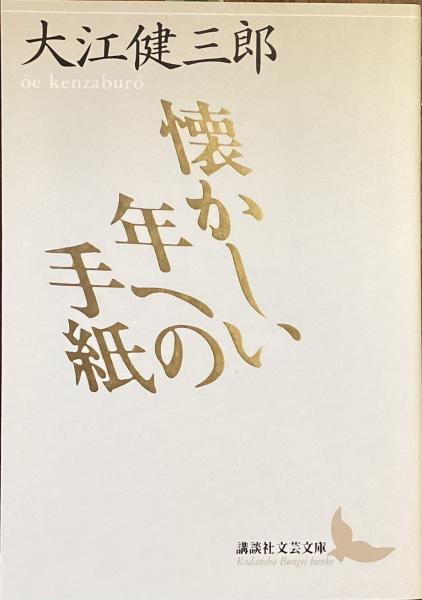 大江健三郎
ōe kenzaburō
懐かしい
年への
手紙
講談社文芸文庫
Kōdansha Bungei bunko